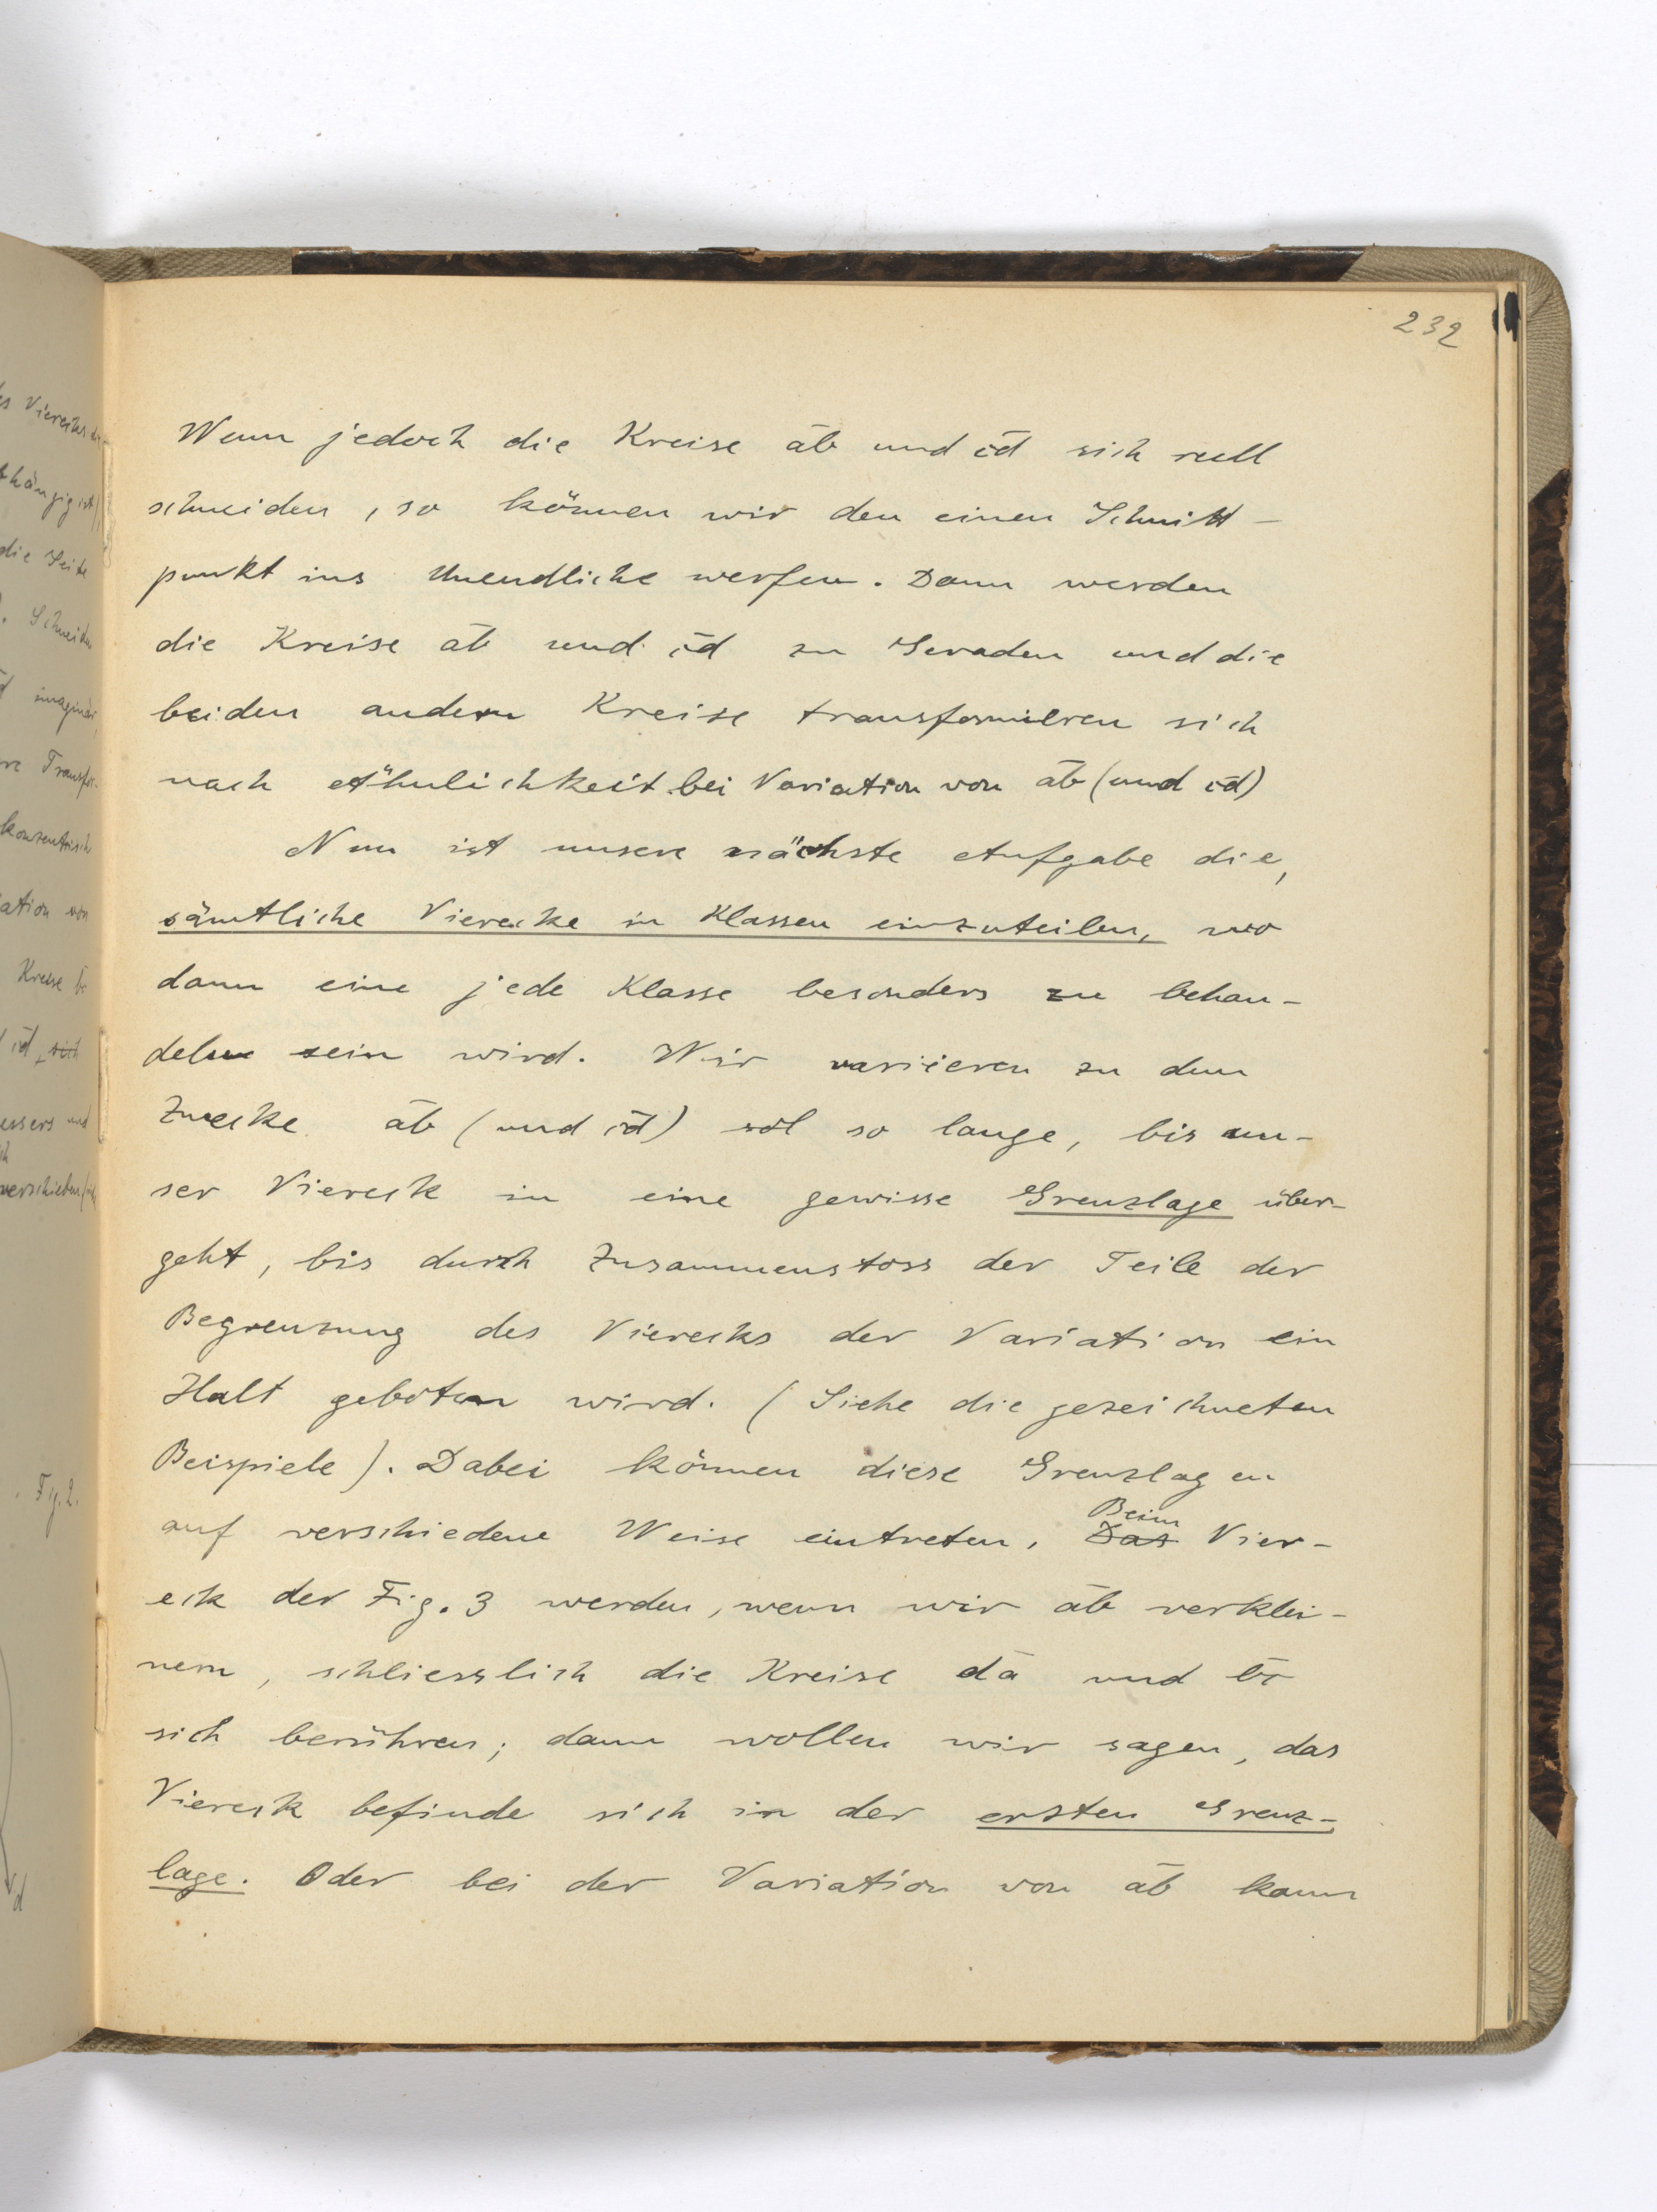 232
Wenn jedoch die Kreise a̅b̅ und c̅d̅ sich reell
schneiden, so können wir den einen Schnitt-
punkt ins Unendliche werfen. Dann werden
die Kreise a̅b̅ und c̅d̅ zu Geraden und die
beiden andern Kreise transformieren sich
nach Ähnlichkeit bei Variation von a̅b̅ (und c̅d̅)
Nun ist unsere nächste Aufgabe die,
sämtliche Vierecke in Klassen einzuteilen, wo
dann eine jede Klasse besonders zu behan-
deln sein wird. Wir variieren zu dem
Zwecke a̅b̅ (und c̅d̅) so lange, bis un-
ser Viereck in eine gewisse Grenzlage über-
geht, bis durch Zusammenstoss der Teile der
Begrenzung des Vierecks der Variation ein
Halt geboten wird. (Siehe die gezeichneten
Beispiele). Dabei können diese Grenzlagen
auf verschiedene Weise eintreten. Beim
Das Vier-
eck der Fig. 3 werden, wenn wir a̅b̅ verklei-
nern, schliesslich die Kreise d̅a̅ und b̅c̅
sich berühren; dann wollen wir sagen, das
Viereck befinde sich in der ersten Grenz-
lage. Oder bei der Variation von a̅b̅ kann
des Vierecks
die Seite
imaginär,
konzentrisch
Kreise
Fig. 2.
d